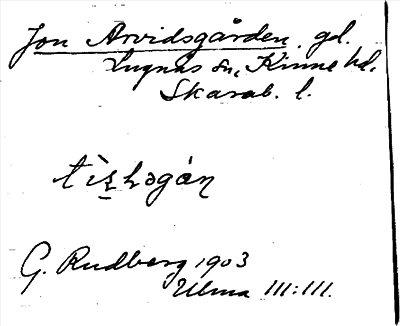 Jon Arvidsgården, gd.
Lugnås sn, Kinne hd.
Skarab. l.
G. Rudberg 1903
Ulma III:III.